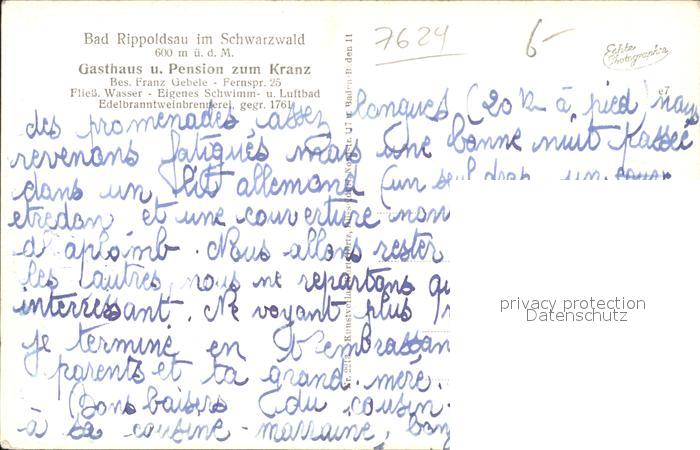 Bad Rippoldsau im Schwarzwald
600 m ü. d. M.
Gasthaus u. Pension zum Kranz
Bes. Franz Gebele - Fernspr. 25
Fließ. Wasser - Eigenes Schwimm- u. Luftbad
Edelbranntweinbrennerei, gegr. 1761
7624
6-
Echte Photographie
des promenades assez longues (20 k à pied) nous
revenons fatigués mais une bonne nuit passée
dans un lit allemand (un seul drap, un
etredon et une couverture
d'aplomb. Nous allons rester
les autres, nous ne repartons
interressant. Ne voyant plus
je termine en t'embrassan
parents et ta grand. mère.
Bons baisers du cousin
à sa cousine - marraine,
privacy protection
Datenschutz